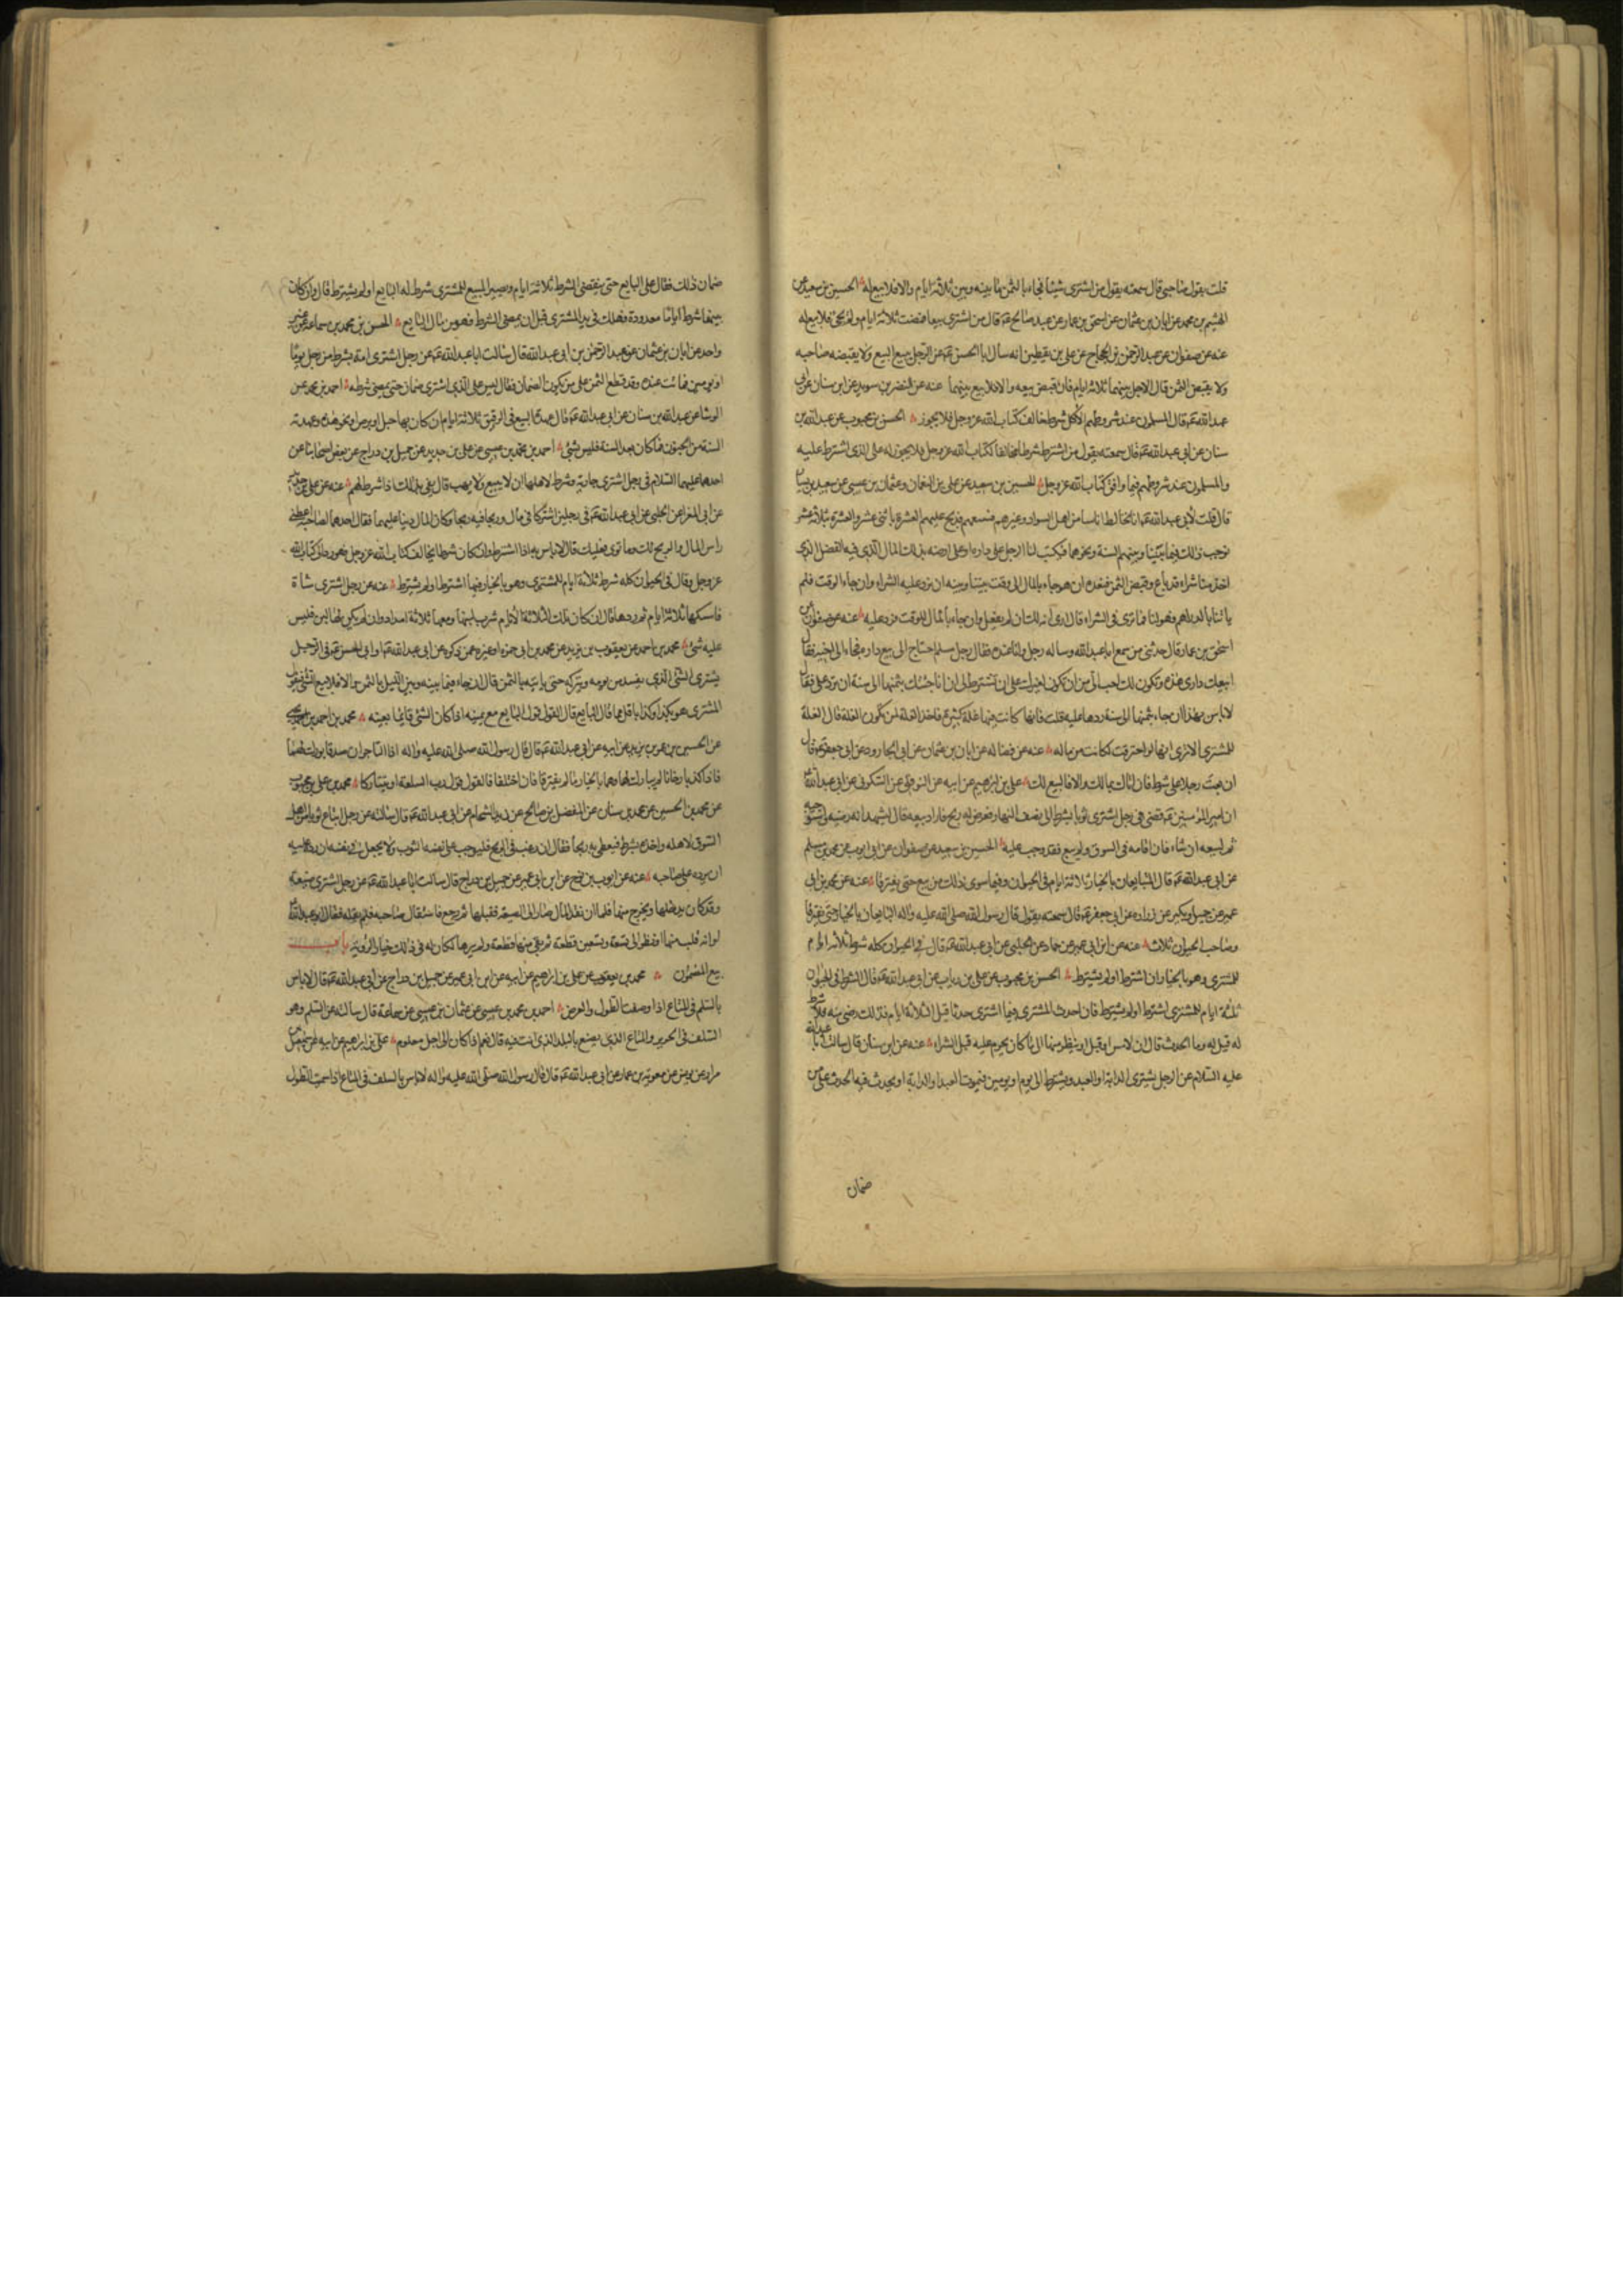 قلت بقول صاحبي قال سمعته يقول من اشترى شيئا فجاء بالثمن ما بينه وبين ثلثة ايام والا فلا بيع له الحسين بن سعيد عن
الهيثم بن محمد عن ابان بن عثمان عن اسحق بن عمار عن عبد صالح عم قال من اشترى بيعا فمضت ثلاثة ايام ولم يجئ فلا بيع له
عنه عن صفوان عن عبد الرحمن بن الحجاج عن علي بن يقطين انه سال ابا الحسن عم عن الرجل يبيع البيع ولا يقبضه صاحبه
ولا يقبض الثمن قال الاجل بينهما ثلاثة ايام فان قبض بيعه والا فلا بيع بينهما عنه عن النضر بن سويد عن ابن سنان عن ابي
عبد الله عم قال المسلمون عند شروطهم الا كل شرط خالف كتاب الله عز وجل فلا يجوز الحسن بن محبوب عن عبد الله بن
سنان عن ابي عبد الله عم قال سمعته يقول من اشترط شرطا مخالفا لكتاب الله عز وجل فلا يجوز له على الذي اشترط عليه
والمسلمون عند شروطهم فيما وافق كتاب الله عز وجل الحسين بن سعيد عن علي بن النعمان وعثمان بن عيسى عن سعيد بن يسار
قال قلت لابي عبد الله عم انا نخالط اناسا من اهل السواد وغيرهم فنبيعهم ونربح عليهم العشرة باثنى عشر والعشرة بثلاثة عشر
نوجب ذلك فيما بيننا وبينهم السنة ونحوها فيكتب لنا الرجل على داره او على ارضه بذلك المال الذي فيه الفضل الذي
اخذ منا شراء قد باع وقبض الثمن فنعده ان هو جاء بالمال الى وقت بيننا وبينه ان نرد عليه الشراء وان جاء الوقت فلم
ياتنا بالدراهم فهو لنا فما ترى في الشراء قال ارى انه لك ان لم يفعل وان جاء بالمال للوقت فرد عليه عنه عن صفوان عن
اسحق بن عمار قال حدثني من سمع ابا عبد الله وساله رجل وانا عنده فقال رجل مسلم احتاج الى بيع داره فجاء الى اخيه فقال
ابيعك داري هذه وتكون لك احب الي من ان تكون لغيرك على ان تشترط لي ان انا جئتك بثمنها الى سنة ان ترد على فقال
لا باس بهذا ان جاء بثمنها الى سنة ردها عليه قلت فانها كانت فيها غلة كثيرة فاخذ الغلة لمن تكون الغلة قال الغلة
للمشتري الا ترى انها لو احترقت لكانت من ماله عنه عن فضالة عن ابان بن عثمان عن ابي الجارود عن ابي جعفر عم قال
ان بعت رجلا على شرط فان اتاك بمالك والا فالبيع لك علي بن ابرهيم عن ابيه عن النوفلي عن السكوني عن ابي عبد الله
ان امير المؤمنين عم قضى في رجل اشترى ثوبا بشرط الى نصف النهار فعرض له ربح فاراد بيعه قال ليشهد انه رضيه واستوجبه
ثم ليبعه ان شاء فان اقامه في السوق ولم يبع فقد وجب عليه الحسين بن سعيد عن صفوان عن ابي ايوب عن محمد بن مسلم
عن ابي عبد الله عم قال المتبايعان بالخيار ثلاثة ايام في الحيوان وفيما سوى ذلك من بيع حتى يفترقا عنه عن محمد بن ابي
عمير عن جميل وبكير عن زرارة عن ابي جعفر عم قال سمعته يقول قال رسول الله صلى الله عليه واله البايعان بالخيار حتى يفترقا
وصاحب الحيوان ثلاث عنه عن ابن ابي عمير عن حماد عن الحلبي عن ابي عبد الله عم قال في الحيوان كله شرط ثلاثة ايام
للمشتري وهو بالخيار ان اشترط او لم يشترط الحسن بن محبوب عن علي بن رياب عن ابي عبد الله عم قال الشرط في الحيوان
ثلثة ايام للمشتري اشترط او لم يشترط فان احدث المشتري فيما اشترى حدثا قبل الثلاثة ايام فذلك رضى منه فلا شرط
له قيل له وما الحدث قال ان لامس او قبل او ينظر منها الى ما كان يحرم عليه قبل الشراء عنه عن ابن سنان قال سالت ابا عبد الله
عليه السلام عن الرجل يشتري الدابة او العبد ويشترط الى يوم او يومين فيموت العبد او الدابة او يحدث فيه الحدث على من
ضمان
ضمان ذلك فقال على البايع حتى ينقضى الشرط ثلاثة ايام ويصير المبيع للمشتري شرط له البايع او لم يشترط قال وان كان
بينهما شرط اياما معدودة فهلك في يد المشتري قبل ان يمضى الشرط فهو من مال البايع الحسن بن محمد بن سماعة عن غير
واحد عن ابان بن عثمان عن عبد الرحمن بن ابي عبد الله قال سالت ابا عبد الله عم عن رجل اشترى امة بشرط من رجل يوما
او يومين فماتت عنده وقد قطع الثمن على من يكون الضمان فقال ليس على الذي اشترى ضمان حتى يمضي شرطه احمد بن محمد عن
الوشا عن عبد الله بن سنان عن ابي عبد الله عم قال عهدة البيع في الرقيق ثلاثة ايام ان كان بها حبل او برص او نحو هذه وعهدته
السنة من الجنون فما كان بعد السنة فليس بشئ احمد بن محمد بن عيسى عن علي بن حديد عن جميل بن دراج عن بعض اصحابنا عن
احدهما عليهما السلام في رجل اشترى جارية وشرط لاهلها ان لا يبيع ولا يهب قال يفي بذلك اذا شرط لهم عنه عن علي بن حديد
عن ابي المغرا عن الحلبي عن ابي عبد الله عم في رجلين اشتركا في مال وربحا فيه ربحا وكان المال دينا عليهما فقال احدهما لصاحبه اعطني
راس المال والربح لك وما توى فعليك قال لا باس به اذا اشترط وان كان شرطا يخالف كتاب الله عز وجل فهو رد الى كتاب الله
عز وجل وقال في الحيوان كله شرط ثلاثة ايام للمشتري وهو بالخيار فيها اشترط او لم يشترط عنه عن رجل اشترى شاة
فامسكها ثلاثة ايام ثم ردها قال ان كان تلك الثلاثة الايام شرب لبنها رد معها ثلاثة امداد وان لم يكن لها لبن فليس
عليه شئ محمد بن احمد عن يعقوب بن يزيد عن محمد بن ابي حمزة او غيره عمن ذكره عن ابي عبد الله عم او ابي الحسن عم في الرجل
يشتري الشئ الذي يفسد من يومه ويتركه حتى ياتيه بالثمن قال ان جاء فيما بينه وبين الليل بالثمن والا فلا بيع له
المشتري هو بكذا وكذا باقل مما قال البايع قال القول قول البايع مع يمينه اذا كان الشئ قايما بعينه محمد بن احمد بن يحيى
عن الحسين بن عمر بن يزيد عن ابيه عن ابي عبد الله عم قال قال رسول الله صلى الله عليه واله اذا التاجران صدقا بورك لهما
فاذا كذبا وخانا لم يبارك لهما وهما بالخيار ما لم يفترقا فان اختلفا فالقول قول رب السلعة او يتتاركا محمد بن علي بن محبوب
عن محمد بن الحسين عن محمد بن سنان عن المفضل بن صالح عن زيد الشحام عن ابي عبد الله عم قال سالته عن رجل ابتاع ثوبا من اهل
السوق لاهله واخذه بشرط فيعطى به ربحا فقال ان رغب في الربح فليوجب على نفسه الثوب ولا يجعل في نفسه ان رد عليه
ان يرده على صاحبه عنه عن ايوب بن نوح عن ابن ابي عمير عن جميل بن دراج قال سالت ابا عبد الله عم عن رجل اشترى ضيعة
وقد كان يدخلها ويخرج منها فلما ان نقد المال صار الى الضيعة فقبلها ثم رجع فاستقال صاحبه فلم يقله فقال ابو عبد الله
لو انه قلب منها او نظر الى تسعة وتسعين قطعة ثم بقى منها قطعة ولم يرها لكان له في ذلك خيار الرؤية باب
بيع المضمون محمد بن يعقوب عن علي بن ابرهيم عن ابيه عن ابن ابي عمير عن جميل بن دراج عن ابي عبد الله عم قال لا باس
بالسلم في المتاع اذا وصفت الطول والعرض احمد بن محمد بن عيسى عن عثمان بن عيسى عن سماعة قال سالته عن السلم وهو
السلف في الحرير والمتاع الذي يصنع بالبلد الذي انت فيه قال نعم اذا كان الى اجل معلوم علي بن ابرهيم عن ابيه عن اسمعيل بن
مرار عن يونس عن معوية بن عمار عن ابي عبد الله عم قال قال رسول الله صلى الله عليه واله لا باس بالسلف في المتاع اذا سميت الطول